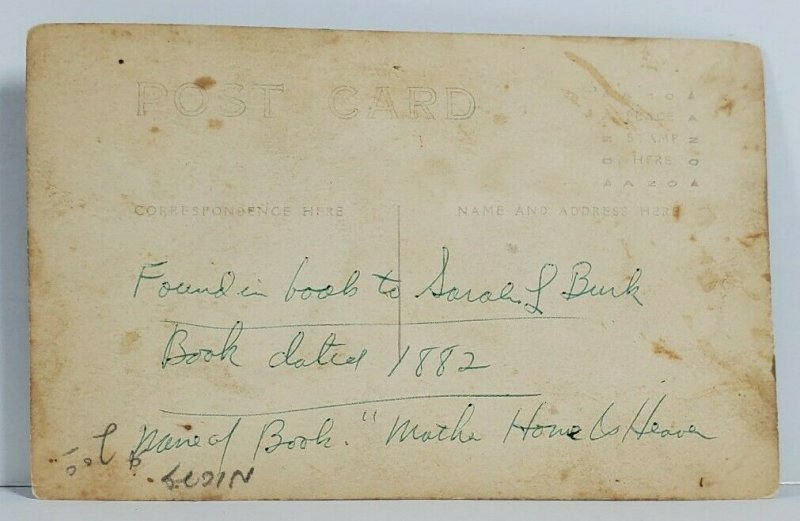 POST CARD
PLACE
STAMP
HERE
AZO
CORRESPONDENCE HERE
NAME AND ADDRESS HERE
Found in book to Sarah L Burk
Book dated 1882
Name of Book. "Mother Home & Heaven